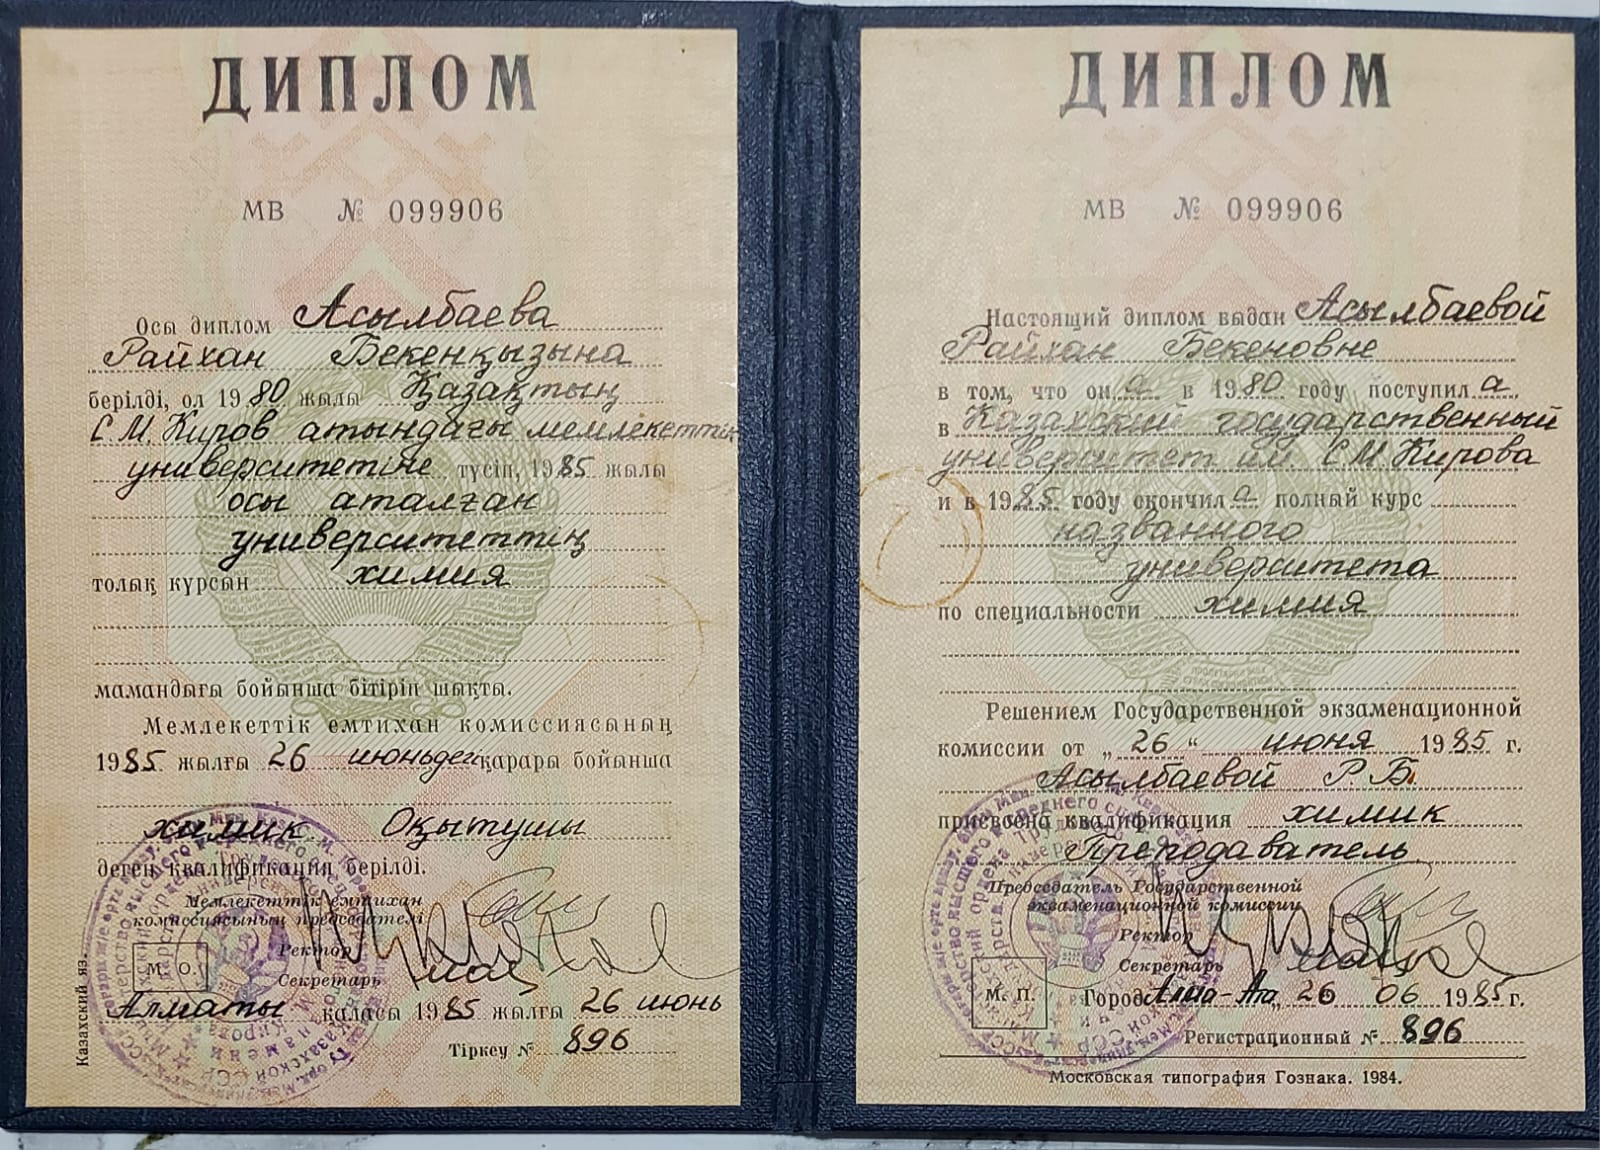 ДИПЛОМ
МВ № 099906
Осы диплом Асылбаева
Райхан Бекенқызына
берілді, ол 1980 жылы Қазақтың
С.М. Киров атындағы мемлекеттік
университетіне түсіп, 1985 жылы
осы аталған
университеттің
толық курсын химия
мамандығы бойынша бітіріп шықты.
Мемлекеттік емтихан комиссиясының
1985 жылғы 26 июньдегі қарары бойынша
химик. Оқытушы
деген квалификация берілді.
Мемлекеттік емтихан
комиссиясының председателі
Ректор
Секретарь
М. О.
Алматы қаласы 1985 жылғы 26 июнь
Тіркеу № 896
Казахский яз.
ДИПЛОМ
МВ № 099906
Настоящий диплом выдан Асылбаевой
Райхан Бекеновне
в том, что она в 1980 году поступила
в Казахский государственный
университет им. С.М. Кирова
и в 1985 году окончила полный курс
названного
университета
по специальности химия
Решением Государственной экзаменационной
комиссии от „26“ июня 1985 г.
Асылбаевой Р.Б.
присвоена квалификация химик
Преподаватель
Председатель Государственной
экзаменационной комиссии
Ректор
Секретарь
М. П.
Город Алма-Ата, 26 06 1985 г.
Регистрационный № 896
Московская типография Гознака. 1984.